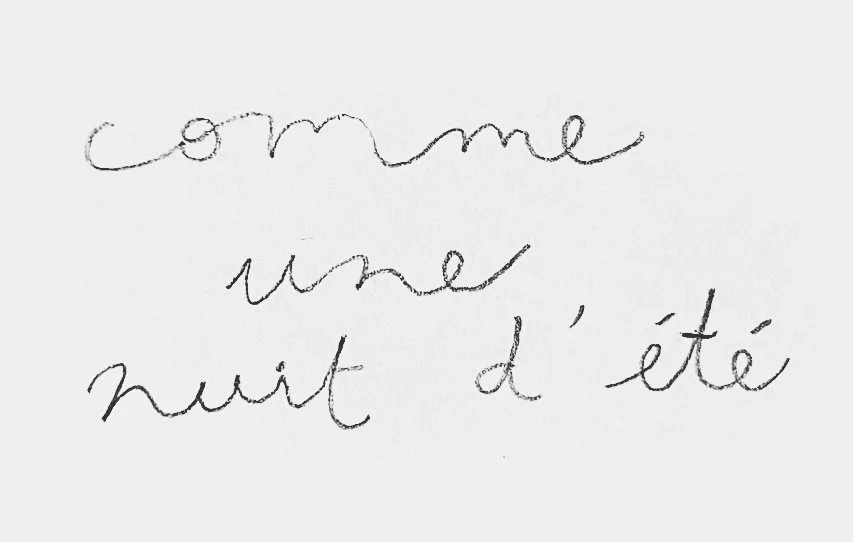 comme
une
nuit d'été